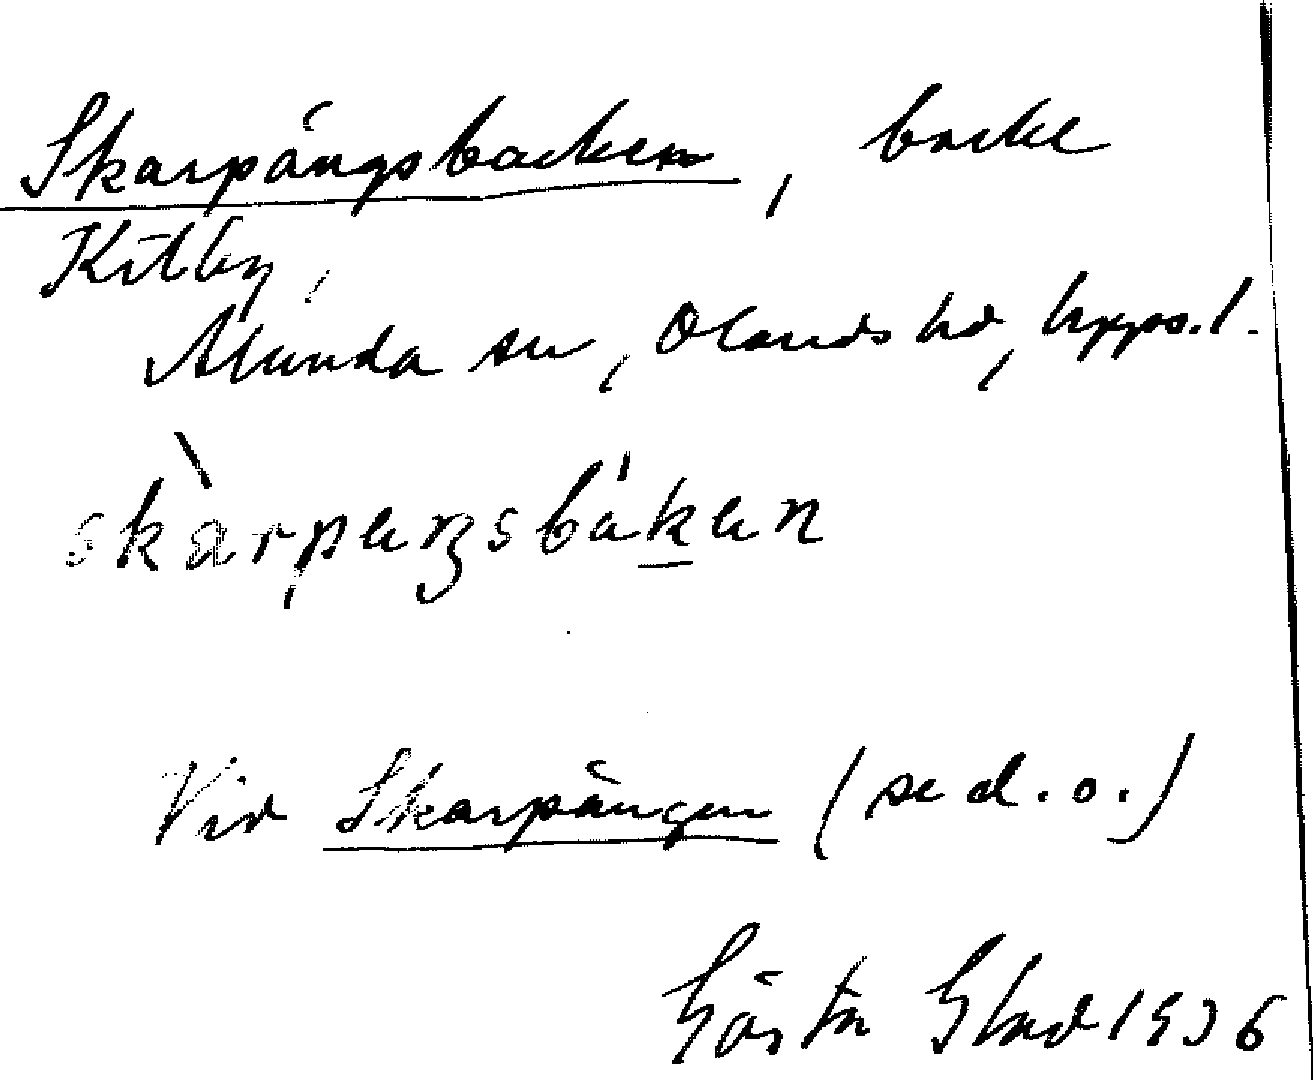 Skarpängsbacken, backe
Kilby,
Alunda sn, Olands hd, Upps. l.
skàrpeŋsbáken
Vid Skarpängen (se d.o.)
Gösta Glad 1936